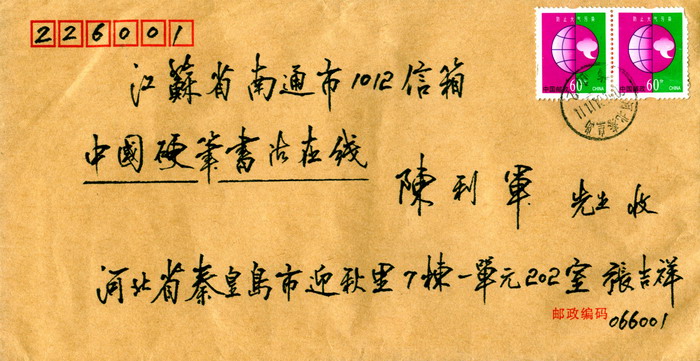 226001
防止大气污染 防止大气污染
中国邮政 60分 CHINA 中国邮政 60分 CHINA
江蘇省南通市1012信箱
中國硬筆書法在线
陳利軍 先生 收
河北省秦皇島市迎秋里7棟一單元202室 張吉祥
邮政编码 066001